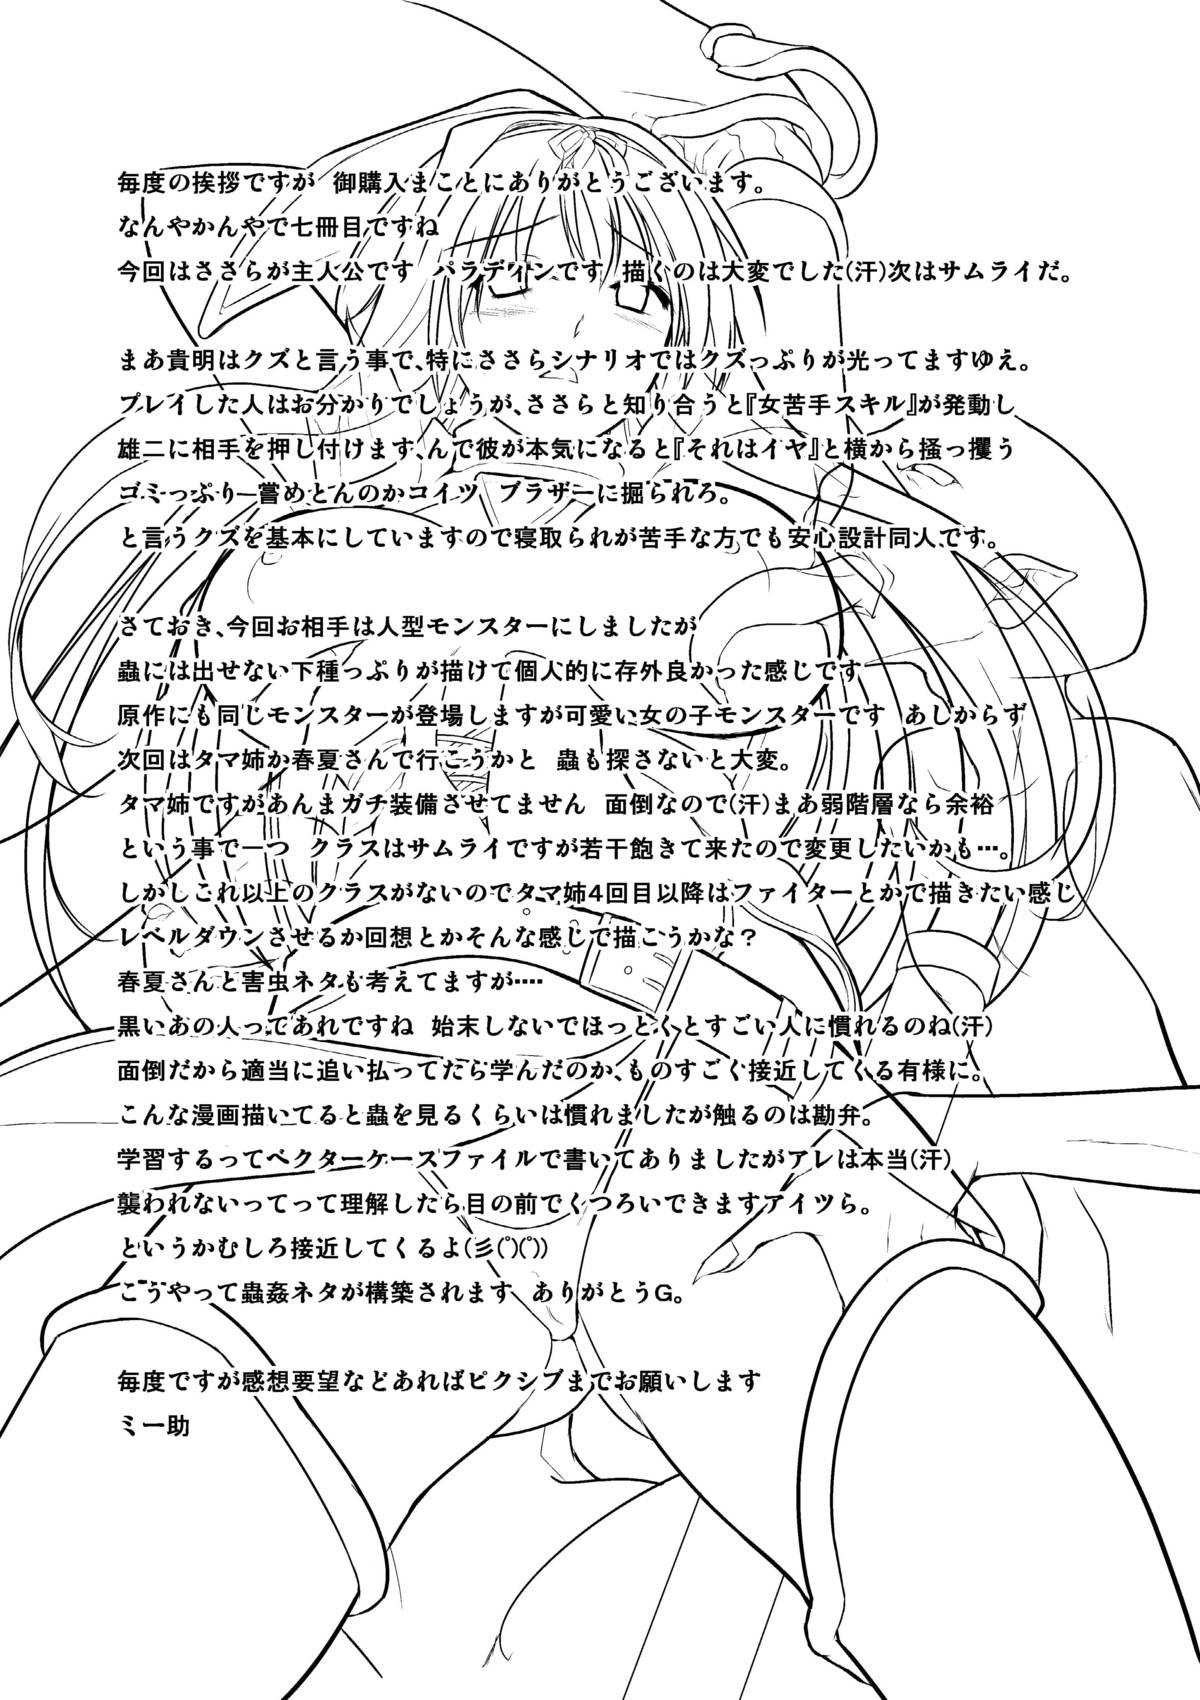 毎度の挨拶ですが　御購入まことにありがとうございます。
なんやかんやで七冊目ですね
今回はささらが主人公です　パラディンです　描くのは大変でした(汗)次はサムライだ。
まあ貴明はクズと言う事で、特にささらシナリオではクズっぷりが光ってますゆえ。
プレイした人はお分かりでしょうが、ささらと知り合うと『女苦手スキル』が発動し
雄二に相手を押し付けます、んで彼が本気になると『それはイヤ』と横から掻っ攫う
ゴミっぷり―嘗めとんのかコイツ　ブラザーに掘られろ。
と言うクズを基本にしていますので寝取られが苦手な方でも安心設計同人です。
さておき、今回お相手は人型モンスターにしましたが
蟲には出せない下種っぷりが描けて個人的に存外良かった感じです
原作にも同じモンスターが登場しますが可愛い女の子モンスターです　あしからず
次回はタマ姉か春夏さんで行こうかと　蟲も探さないと大変。
タマ姉ですがあんまガチ装備させてません　面倒なので(汗)まあ弱階層なら余裕
という事で一つ　クラスはサムライですが若干飽きて来たので変更したいかも…。
しかしこれ以上のクラスがないのでタマ姉4回目以降はファイターとかで描きたい感じ
レベルダウンさせるか回想とかそんな感じで描こうかな？
春夏さんと害虫ネタも考えてますが‥‥
黒いあの人ってあれですね　始末しないでほっとくとすごい人に慣れるのね(汗)
面倒だから適当に追い払ってたら学んだのか、ものすごく接近してくる有様に。
こんな漫画描いてると蟲を見るくらいは慣れましたが触るのは勘弁。
学習するってベクターケースファイルで書いてありましたがアレは本当(汗)
襲われないってって理解したら目の前でくつろいできますアイツら。
というかむしろ接近してくるよ(彡(ﾟ)(ﾟ))
こうやって蟲姦ネタが構築されます　ありがとうG。
毎度ですが感想要望などあればピクシブまでお願いします
ミー助